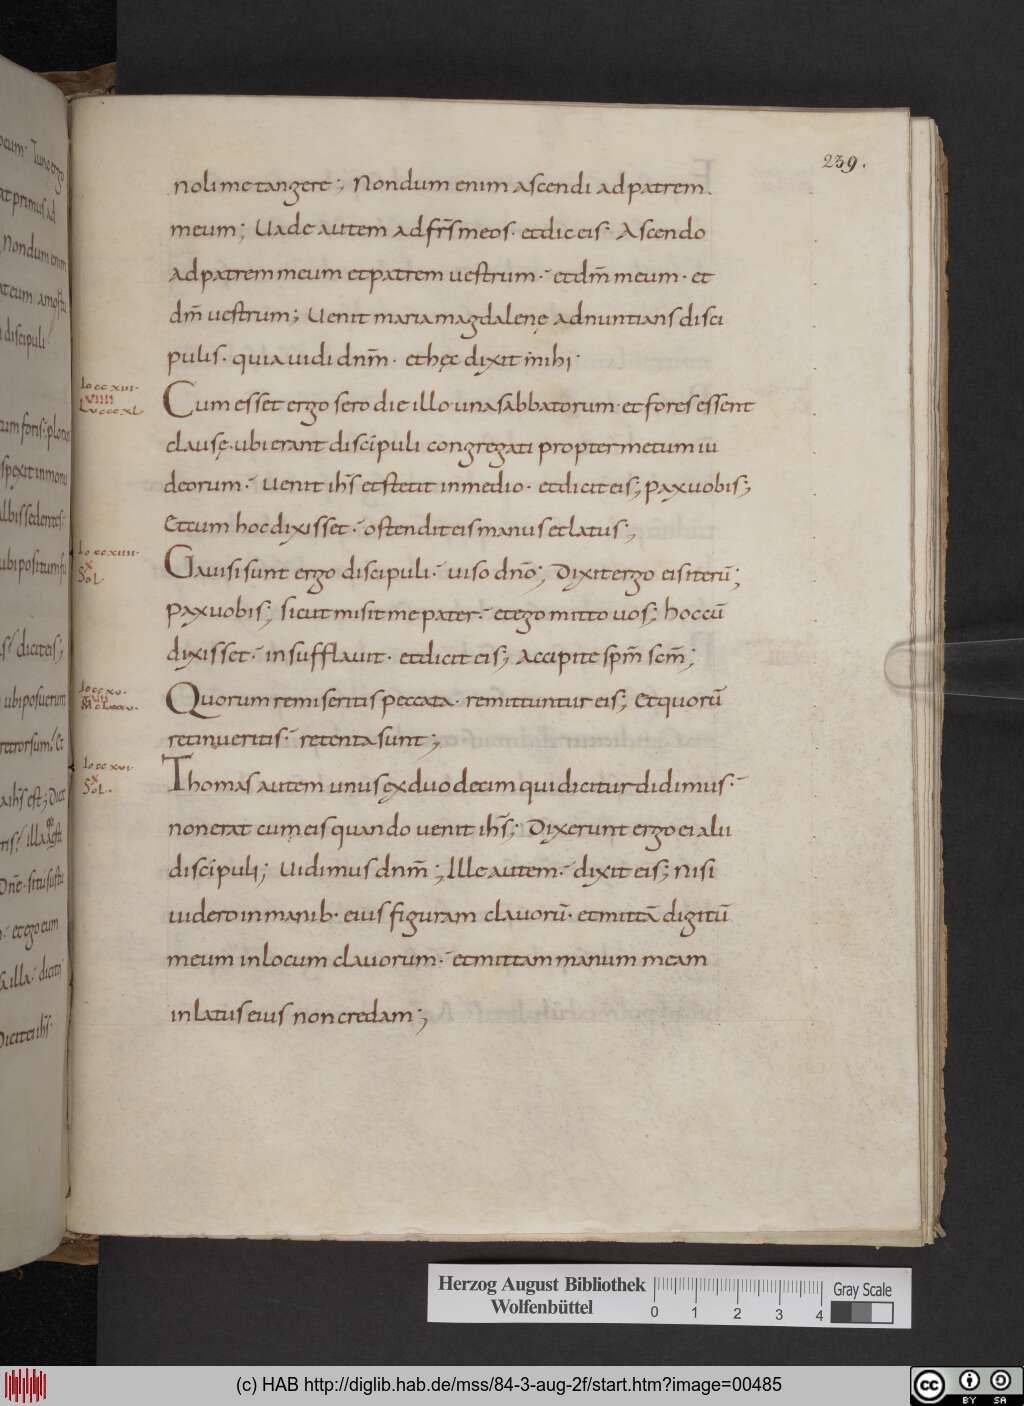 239.
noli me tangere; Nondum enim ascendi ad patrem
meum; Uade autem ad fr̄s meos. et dic eis. Ascendo
ad patrem meum et patrem uestrum. et dm̄ meum. et
dm̄ uestrum; Uenit maria magdalenę adnuntians disci
pulis. quia uidi dnm̄. et hęc dixit mihi.
Io ccxiii.
VIIII
Lu cccxl
Cum esset ergo sero die illo una sabbatorum. et fores essent
clausę. ubi erant discipuli congregati propter metum iu
deorum. Uenit ihs̄ et stetit in medio. et dicit eis; Pax uobis;
Et cum hoc dixisset. ostendit eis manus et latus;
Io ccxiiii.
X
Sol.
Gauisi sunt ergo discipuli. uiso dn̄o; Dixit ergo eis iterū;
Pax uobis; sicut misit me pater. et ego mitto uos; hoc cū
dixisset. insufflauit. et dicit eis; Accipite spm̄ scm̄;
Io ccxv.
Quorum remiseritis peccata. remittuntur eis; Et quorū
retinueritis. retenta sunt;
Io ccxvi.
X
Sol.
Thomas autem unus ex duodecim qui dicitur didimus.
non erat cum eis quando uenit ihs̄; Dixerunt ergo ei alii
discipuli; Uidimus dnm̄; Ille autem. dixit eis; Nisi
uidero in manib. eius figuram clauorū. et mittā digitū
meum in locum clauorum. et mittam manum meam
in latus eius non credam;
Herzog August Bibliothek
Wolfenbüttel
0 1 2 3 4
Gray Scale
(c) HAB http://diglib.hab.de/mss/84-3-aug-2f/start.htm?image=00485
cc BY SA